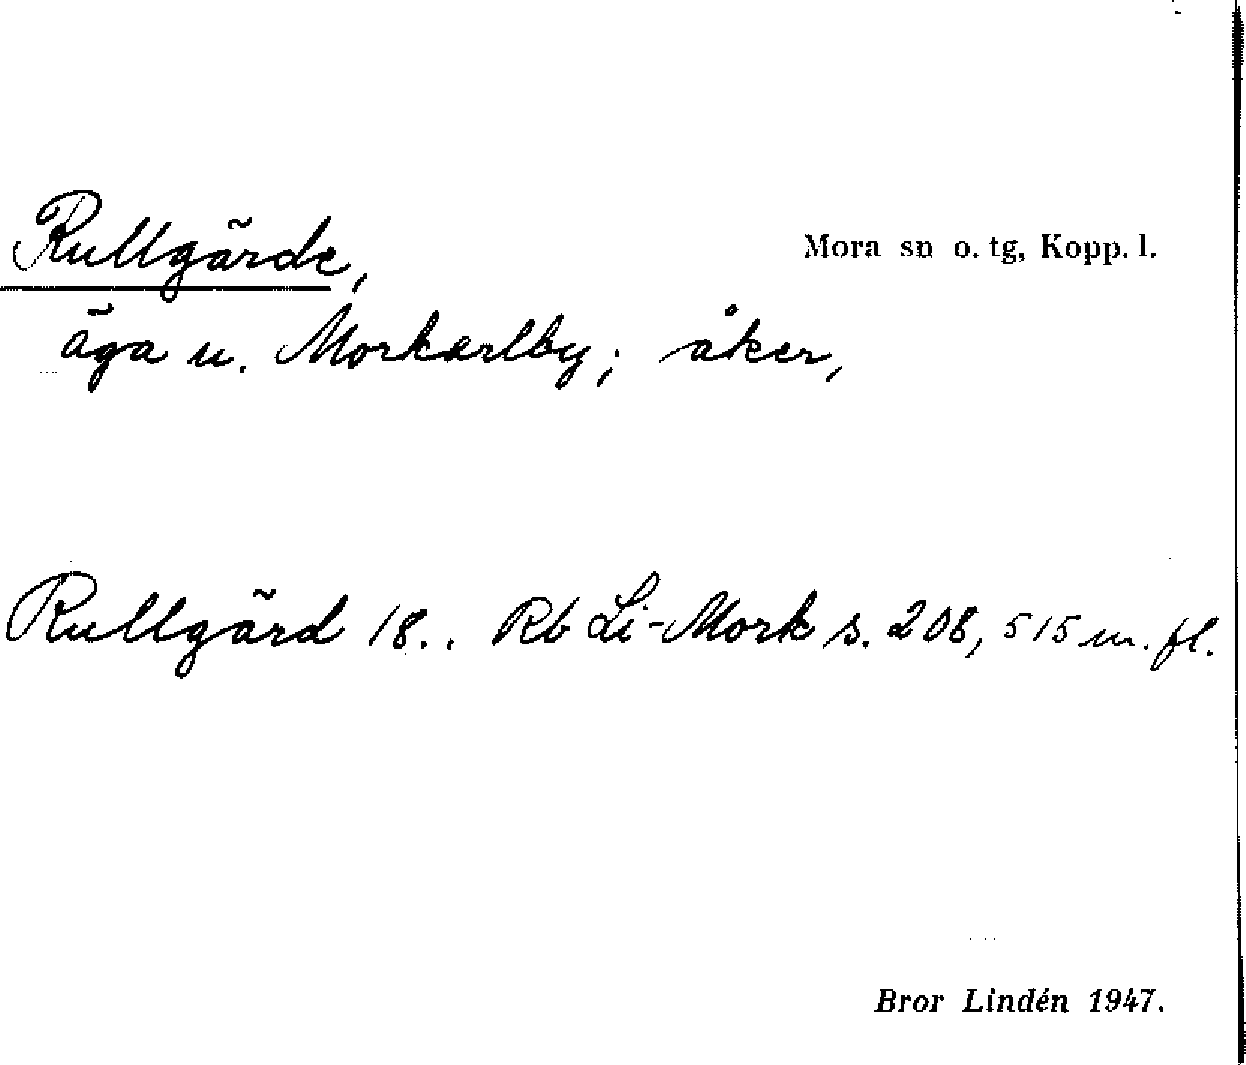 Rullgärde,
Mora sn o. tg, Kopp. l.
äga u. Morkarlby; åker,
Rullgärd 18.. Rb Li-Mork s. 208, 515 m. fl.
Bror Lindén 1947.